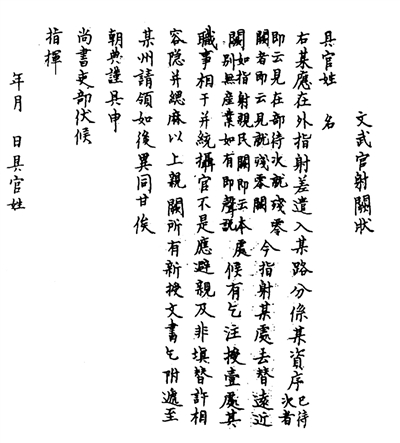 文武官射闕狀
具官姓　名
右某應在外指射差遣入某路分係某資序已待次者
即云見在部待次就殘零闕者即云見就殘零闕今指射某處去替遠近
闕如指射親民闕即云本處別無産業如有即聲說候有乞注授壹處其
職事相干并統攝官不是應避親及非填替許相
容隱并緦麻以上親闕所有新授文書乞附遞至
某州請領如後異同甘俟
朝典謹具申
尚書吏部伏候
指揮
年月　日具官姓